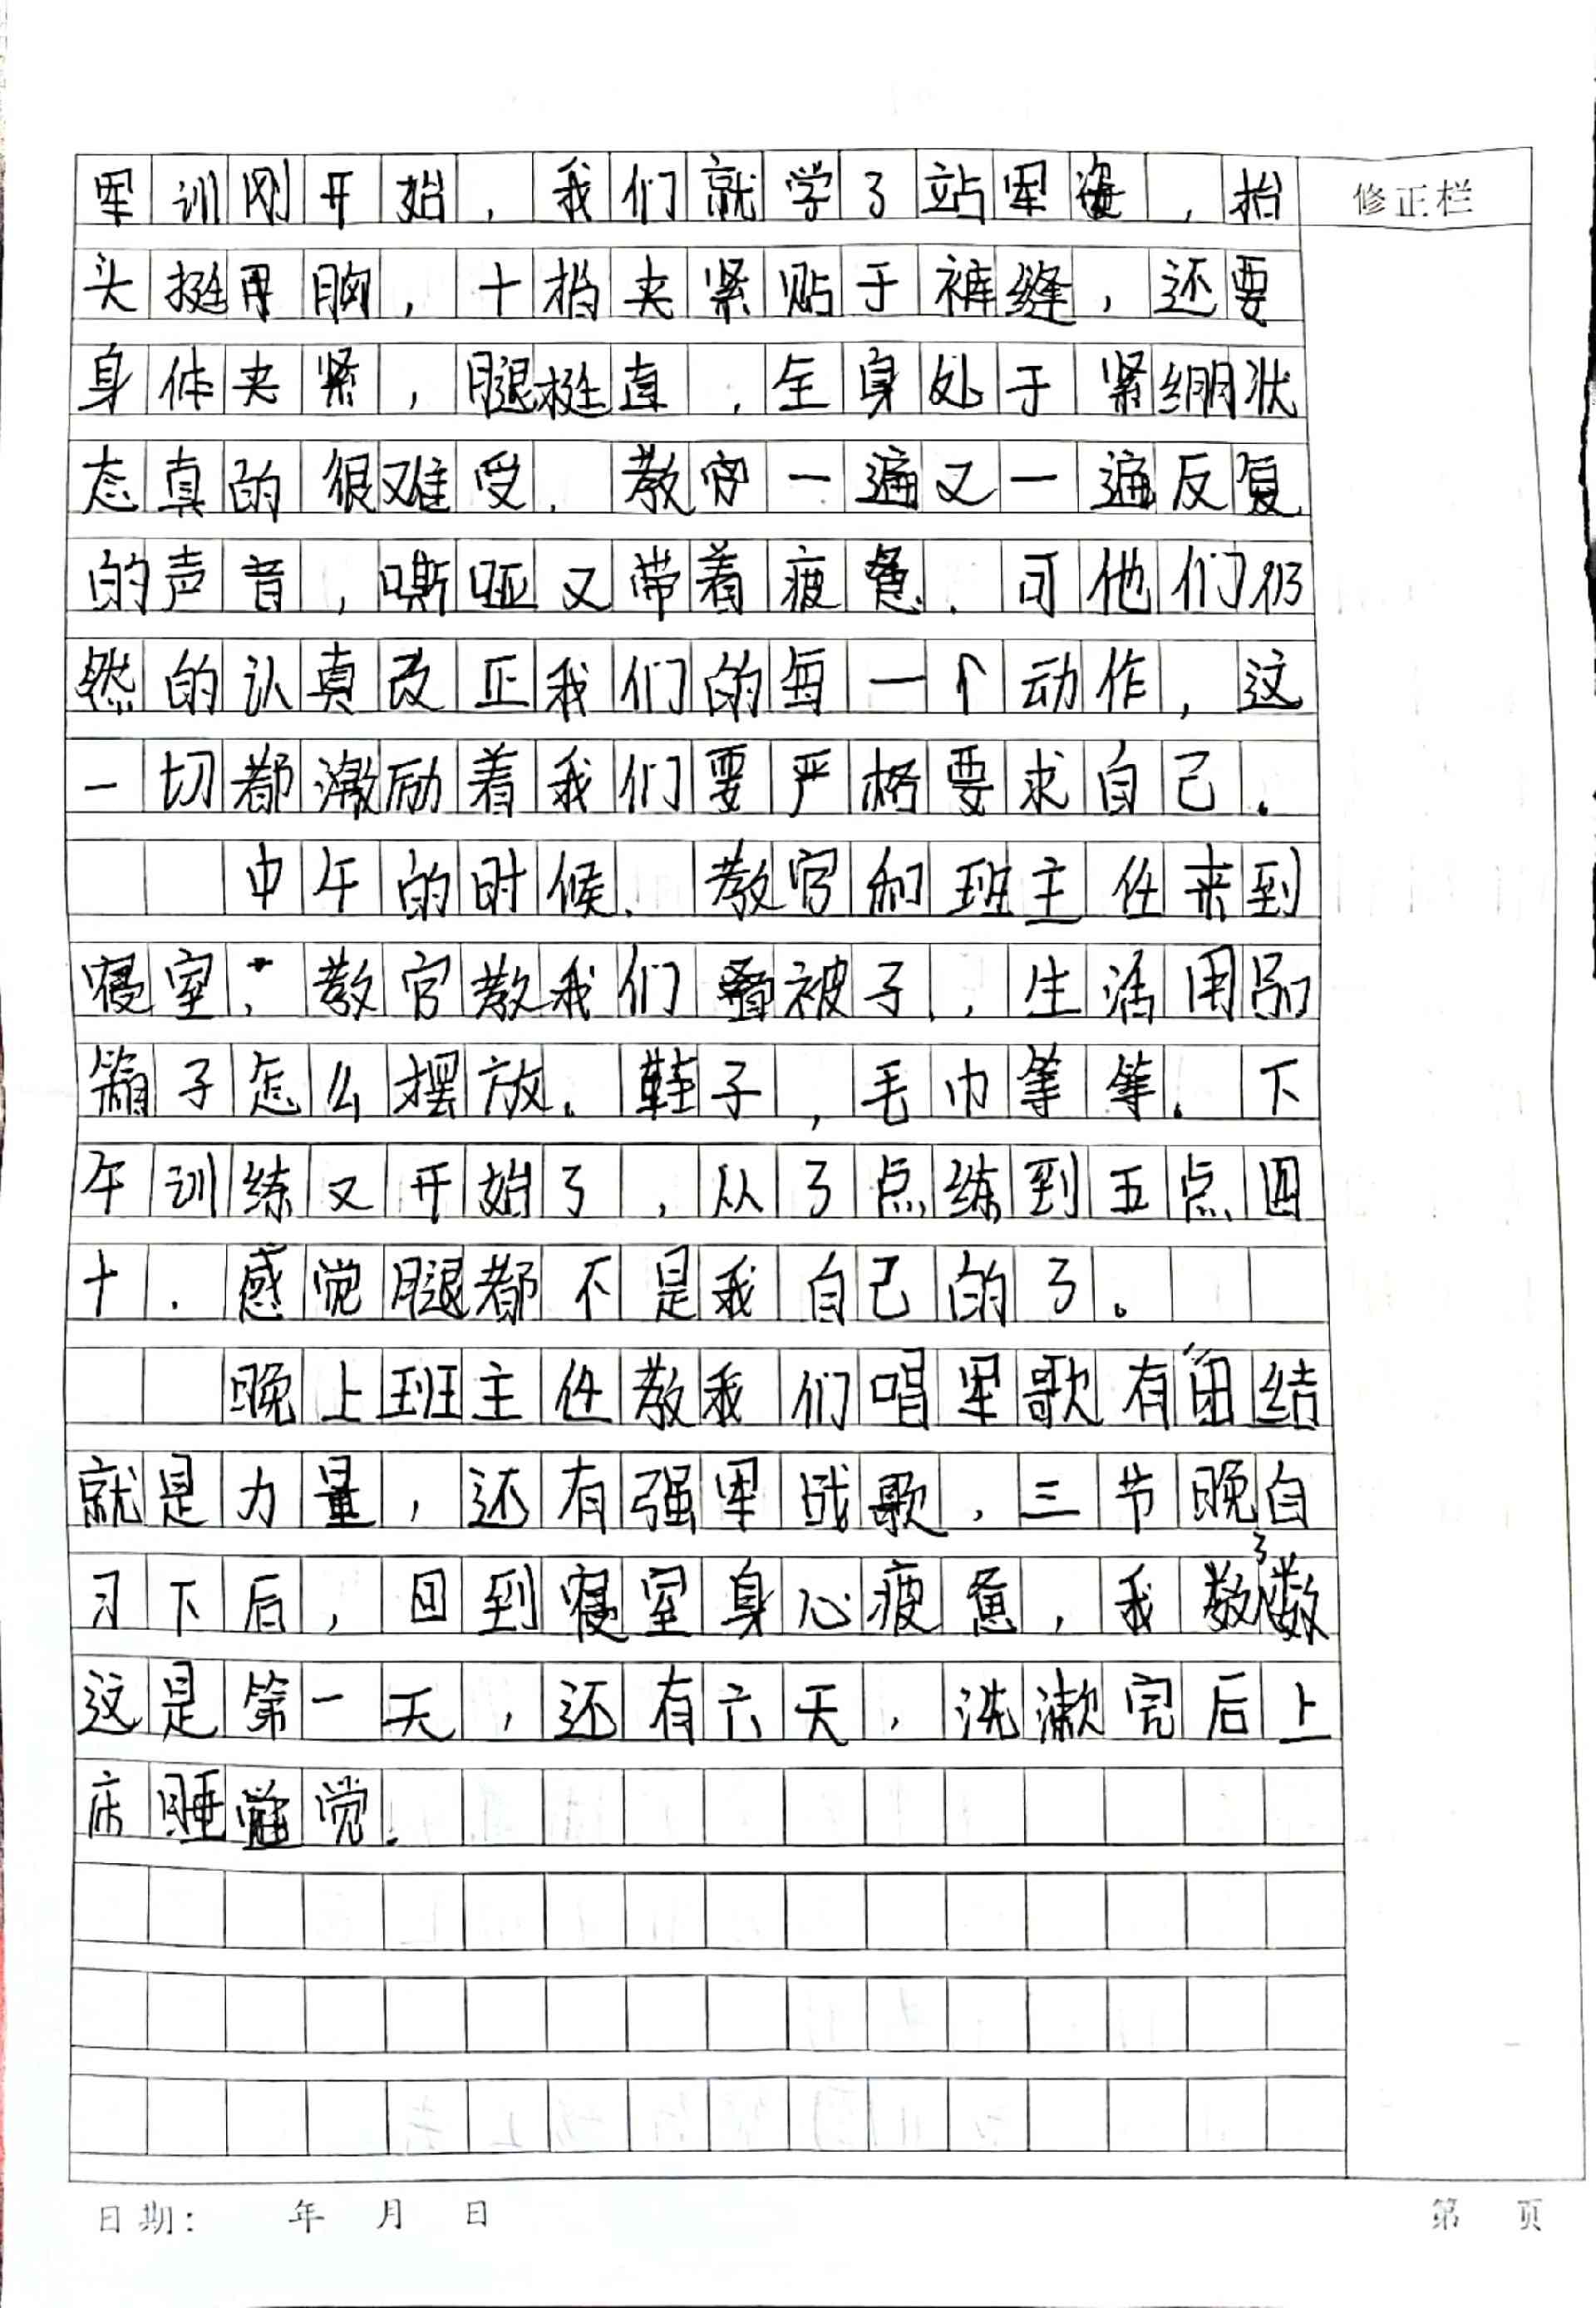 军训刚开始，我们就学了站军姿，抬
修正栏
头挺胸，十指夹紧贴于裤缝，还要
身体夹紧，腿挺直，全身处于紧绷状
态真的很难受。教官一遍又一遍反复
的声音，嘶哑又带着疲惫。可他们仍
然的认真改正我们的每一个动作，这
一切都激励着我们要严格要求自己。
中午的时候，教官和班主任来到
寝室，教官教我们叠被子，生活用品
箱子怎么摆放。鞋子，毛巾等等。下
午训练又开始了，从3点练到五点四
十．感觉腿都不是我自己的了。
晚上班主任教我们唱军歌有团结
就是力量，还有强军战歌，三节晚自
习下后，回到寝室身心疲惫，我数了数
这是第一天，还有六天，洗漱完后上
床睡觉。
日期： 年 月 日
第 页